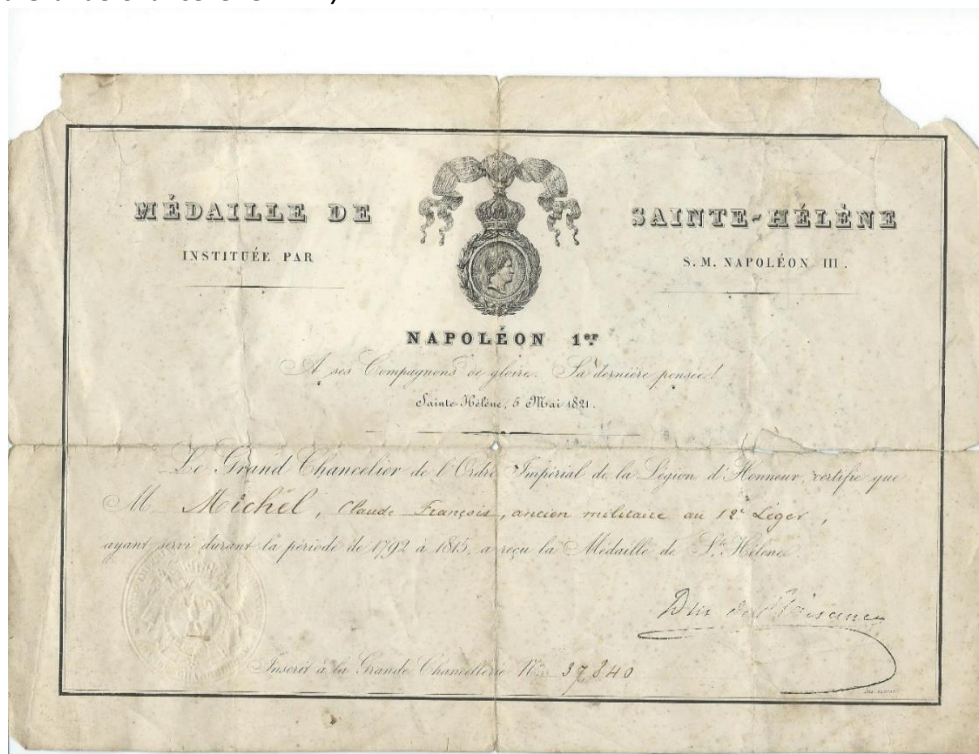 MÉDAILLE DE SAINTE-HÉLÈNE
INSTITUÉE PAR S. M. NAPOLÉON III.
NAPOLÉON 1er
A ses Compagnons de gloire. Sa dernière pensée!
Sainte-Hélène, 5 Mai 1821.
Le Grand Chancelier de l'Ordre Impérial de la Légion d'Honneur, certifie que
M. Michel, Claude François, ancien militaire au 12e Léger,
ayant servi durant la période de 1792 à 1815, a reçu la Médaille de Ste Hélène.
Duc de Plaisance
Inscrit à la Grande Chancellerie No. 37,840